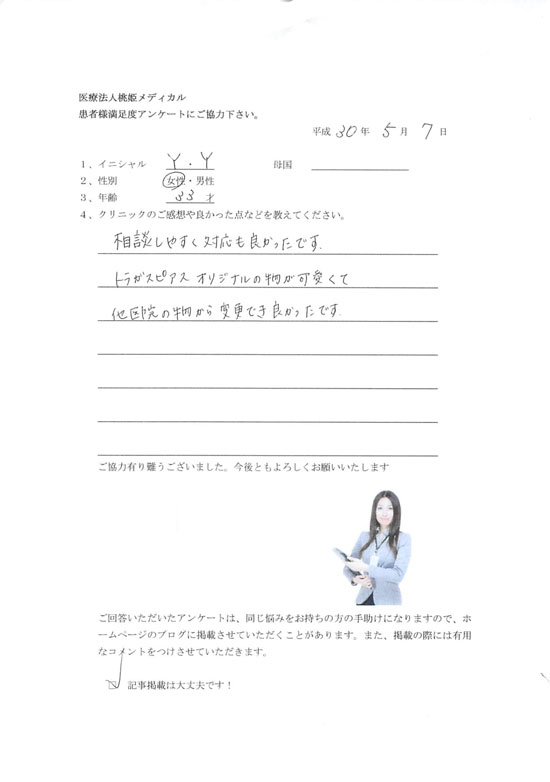 医療法人桃姫メディカル
患者様満足度アンケートにご協力下さい。
平成 30 年 5 月 7 日
1、イニシャル Y.Y 母国
2、性別 女性・男性
3、年齢 33 才
4、クリニックのご感想や良かった点などを教えてください。
相談しやすく対応も良かったです.
トラガスピアス オリジナルの物が可愛くて
他医院の物から変更でき良かったです.
ご協力有り難うございました。今後ともよろしくお願いいたします
ご回答いただいたアンケートは、同じ悩みをお持ちの方の手助けになりますので、ホ
ームページのブログに掲載させていただくことがあります。また、掲載の際には有用
なコメントをつけさせていただきます。
☑ 記事掲載は大丈夫です！